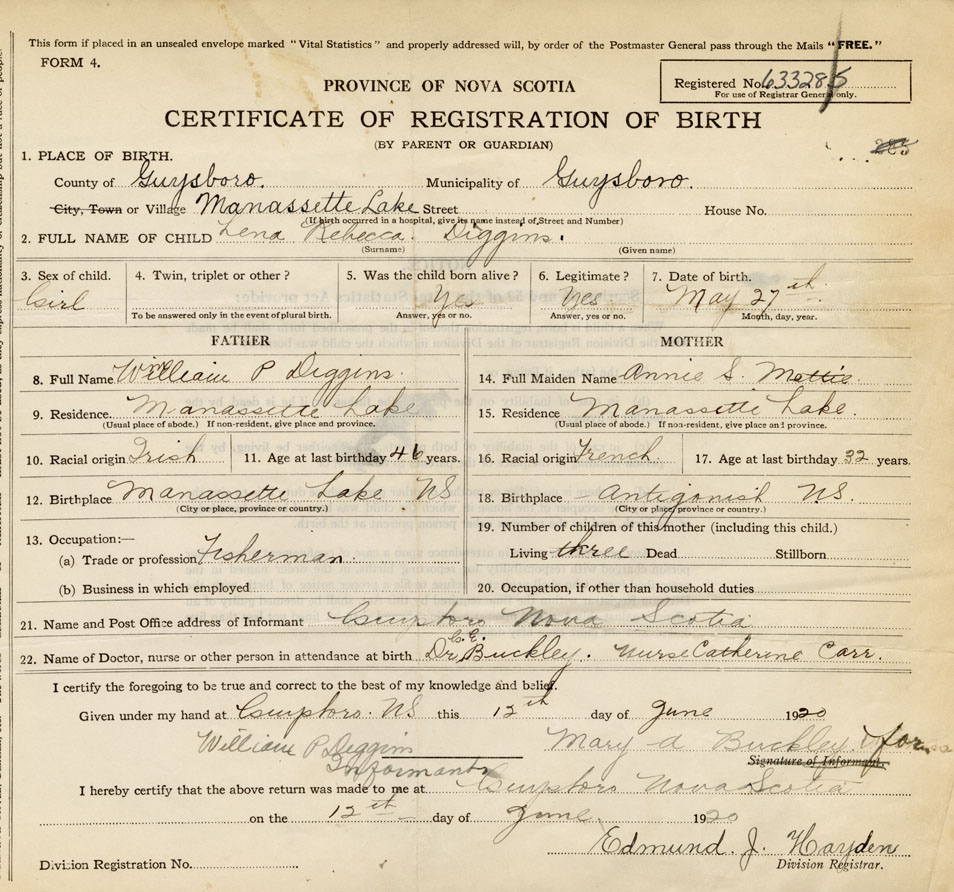 This form if placed in an unsealed envelope marked "Vital Statistics" and properly addressed will, by order of the Postmaster General pass through the Mails "FREE."
FORM 4.
Registered No. 633285
For use of Registrar General only.
PROVINCE OF NOVA SCOTIA
CERTIFICATE OF REGISTRATION OF BIRTH
(BY PARENT OR GUARDIAN)
285
1. PLACE OF BIRTH.
County of Guysboro. Municipality of Guysboro.
City, Town or Village Manassette Lake Street House No.
(If birth occurred in a hospital, give its name instead of Street and Number)
2. FULL NAME OF CHILD Lena Rebecca. Diggins.
(Surname) (Given name)
3. Sex of child. 4. Twin, triplet or other? 5. Was the child born alive? 6. Legitimate? 7. Date of birth.
Girl Yes Yes May 27th
To be answered only in the event of plural birth. Answer, yes or no. Answer, yes or no. Month, day, year.
FATHER MOTHER
8. Full Name William P Diggins. 14. Full Maiden Name Annie S. Mattie.
9. Residence. Manassette Lake 15. Residence Manassette Lake.
(Usual place of abode.) If non-resident, give place and province. (Usual place of abode.) If non-resident, give place and province.
10. Racial origin Irish 11. Age at last birthday 46 years. 16. Racial origin French. 17. Age at last birthday 32 years.
12. Birthplace Manassette Lake NS 18. Birthplace Antigonish NS.
(City or place, province or country.) (City or place, province or country.)
13. Occupation:— 19. Number of children of this mother (including this child.)
(a) Trade or profession Fisherman Living three Dead Stillborn
(b) Business in which employed 20. Occupation, if other than household duties
21. Name and Post Office address of Informant Nova Scotia
22. Name of Doctor, nurse or other person in attendance at birth Dr. G.E. Buckley. Nurse Catherine Carr.
I certify the foregoing to be true and correct to the best of my knowledge and belief.
Given under my hand at NS this 12th day of June 1920
William P Diggins Mary A Buckley for
Informant Signature of Informant.
I hereby certify that the above return was made to me at Nova Scotia
on the 12th day of June. 1920
Edmund J. Hayden
Division Registration No. Division Registrar.